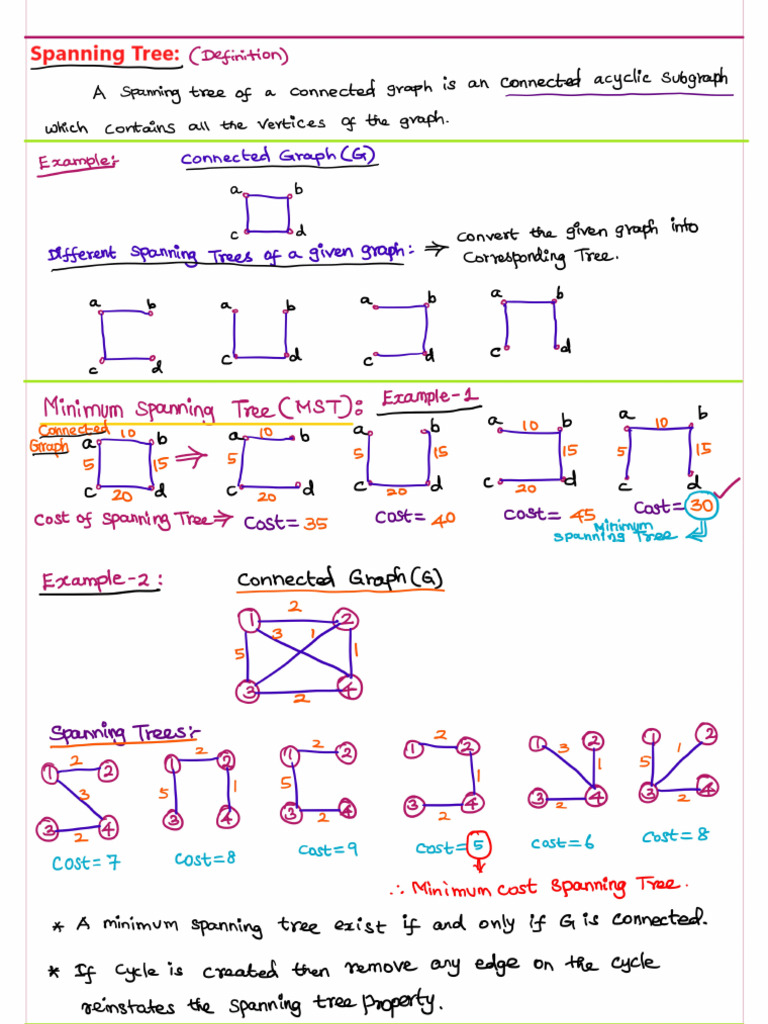 Spanning Tree: (Definition)
A spanning tree of a connected graph is an connected acyclic subgraph
which contains all the vertices of the graph.
Example:- Connected Graph (G)
a b
c d
Different Spanning Trees of a given graph: ⇒ Convert the given graph into
Corresponding Tree.
a b a b a b a b
c d c d c d c d
Minimum Spanning Tree (MST): Example-1
Connected
Graph
a 10 b ⇒ a 10 b a b a 10 b a 10 b
5 15 5 5 15 15 5 15
c 20 d c 20 d c 20 d c 20 d c d
Cost of Spanning Tree ⇒ Cost = 35 Cost = 40 Cost = 45 Cost = 30 ✓
Minimum
Spanning Tree
Example-2: Connected Graph (G)
2
1 2
3 1
5 1
3 4
2
Spanning Trees:-
1 2 2 1 2 2 1 2 2 1 2 2 1 2 1 2
3 5 1 5 1 3 1 5 1
3 2 4 3 4 3 2 4 3 2 4 3 2 4 3 2 4
Cost = 7 Cost = 8 Cost = 9 Cost = 5 Cost = 6 Cost = 8
∴ Minimum Cost Spanning Tree.
* A minimum spanning tree exist if and only if G is connected.
* If Cycle is created then remove any edge on the cycle
reinstates the spanning tree property.